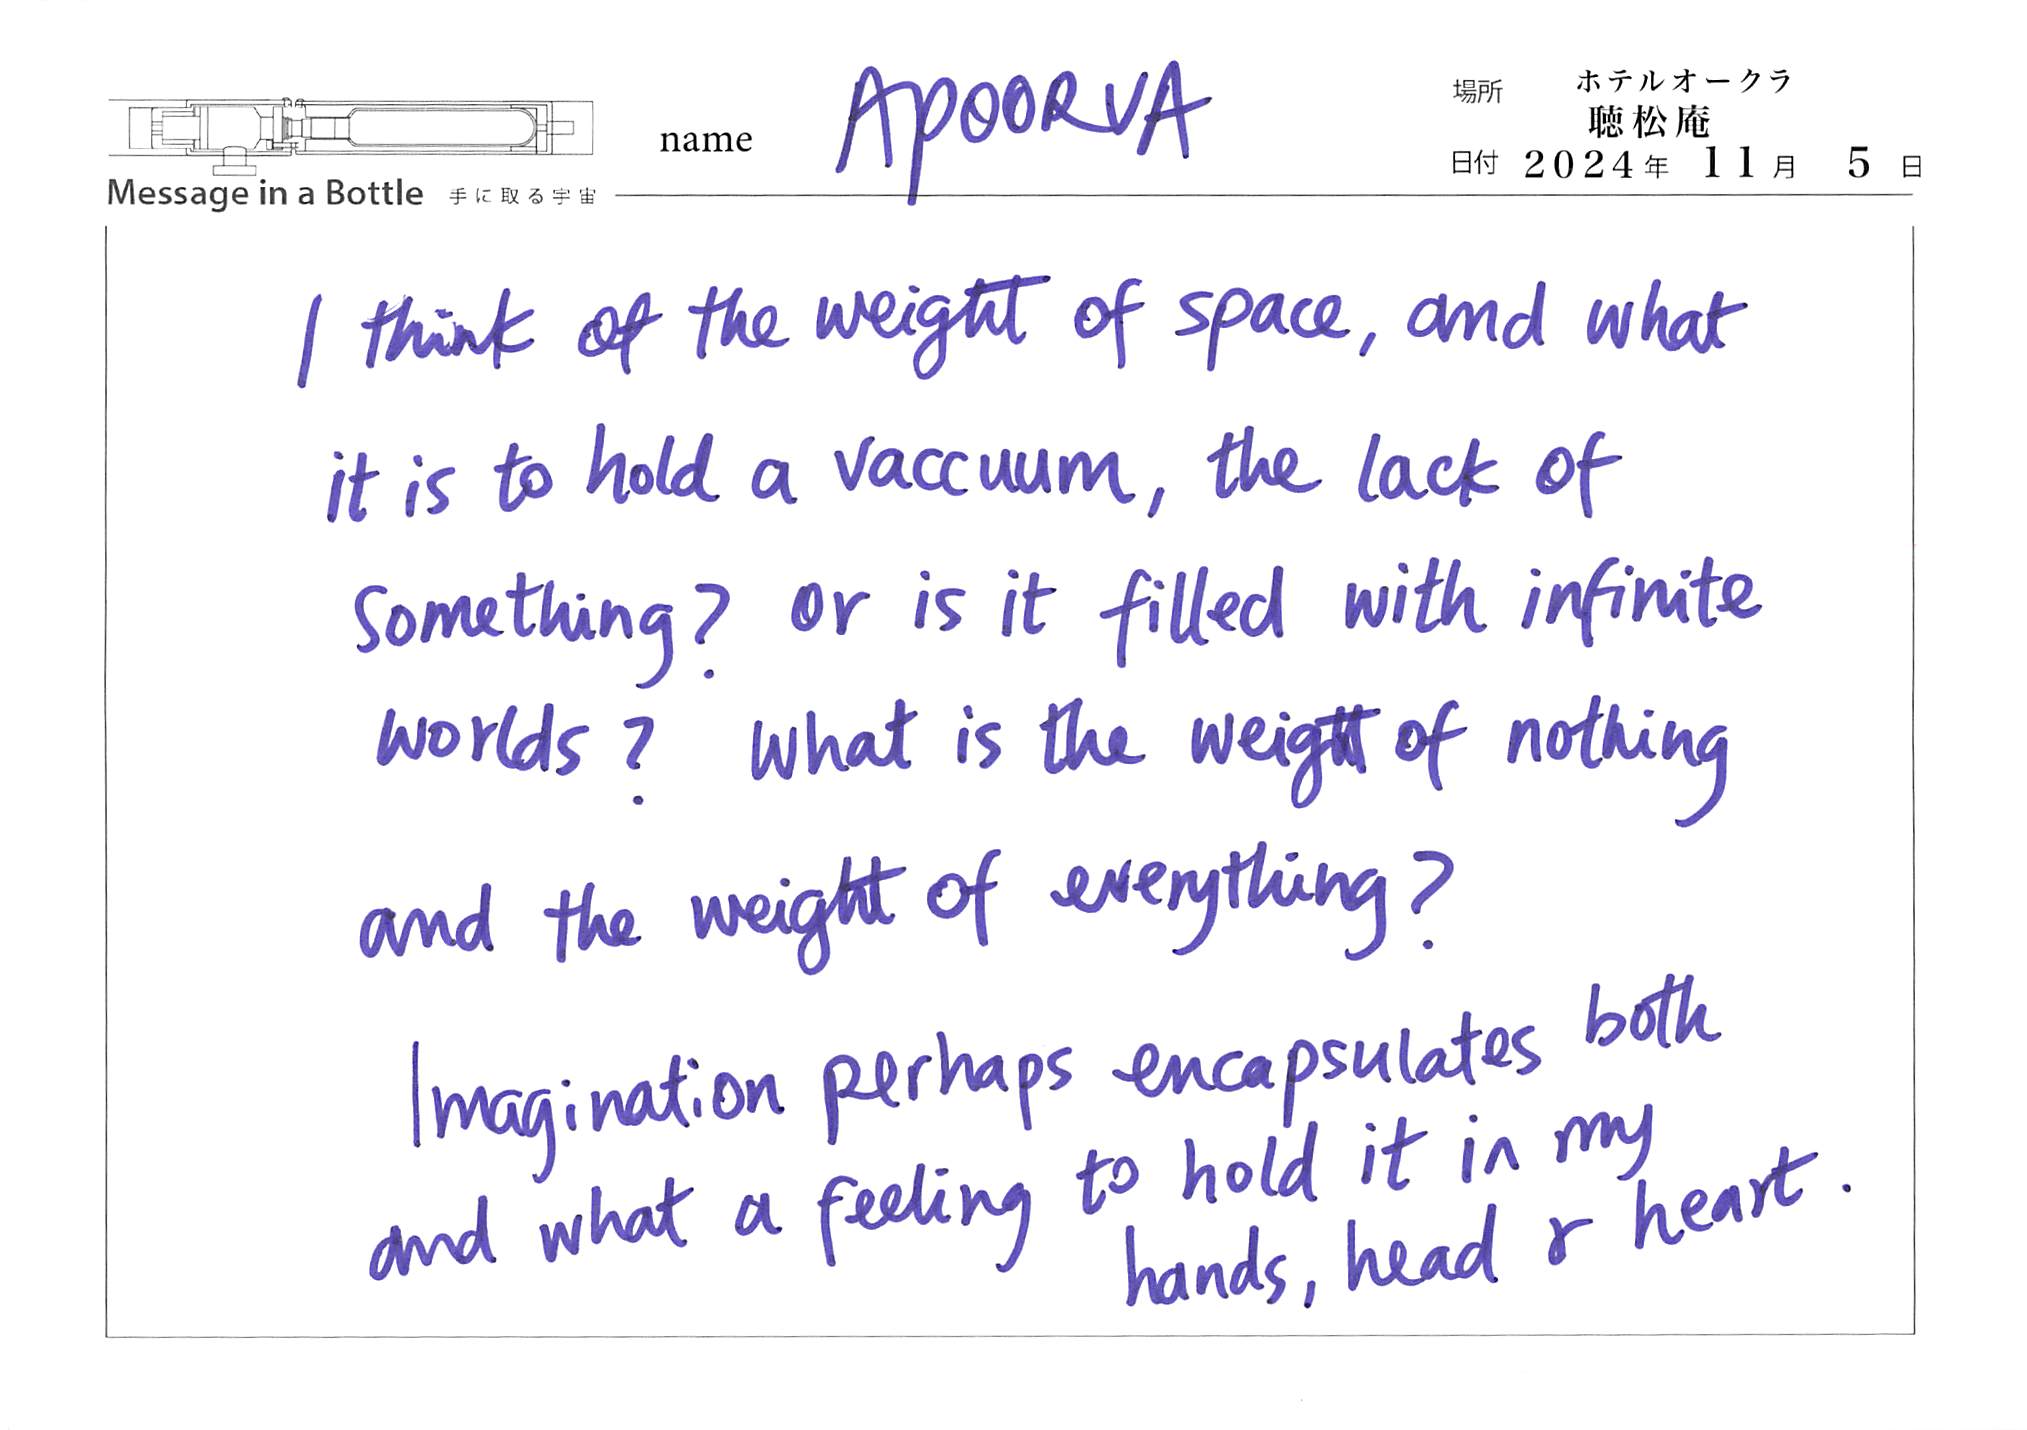 name APOORVA
場所 ホテルオークラ
聴松庵
日付 2024年 11月 5日
Message in a Bottle 手に取る宇宙
I think of the weight of space, and what
it is to hold a vaccuum, the lack of
something? or is it filled with infinite
worlds? What is the weight of nothing
and the weight of everything?
Imagination perhaps encapsulates both
and what a feeling to hold it in my
hands, head & heart.